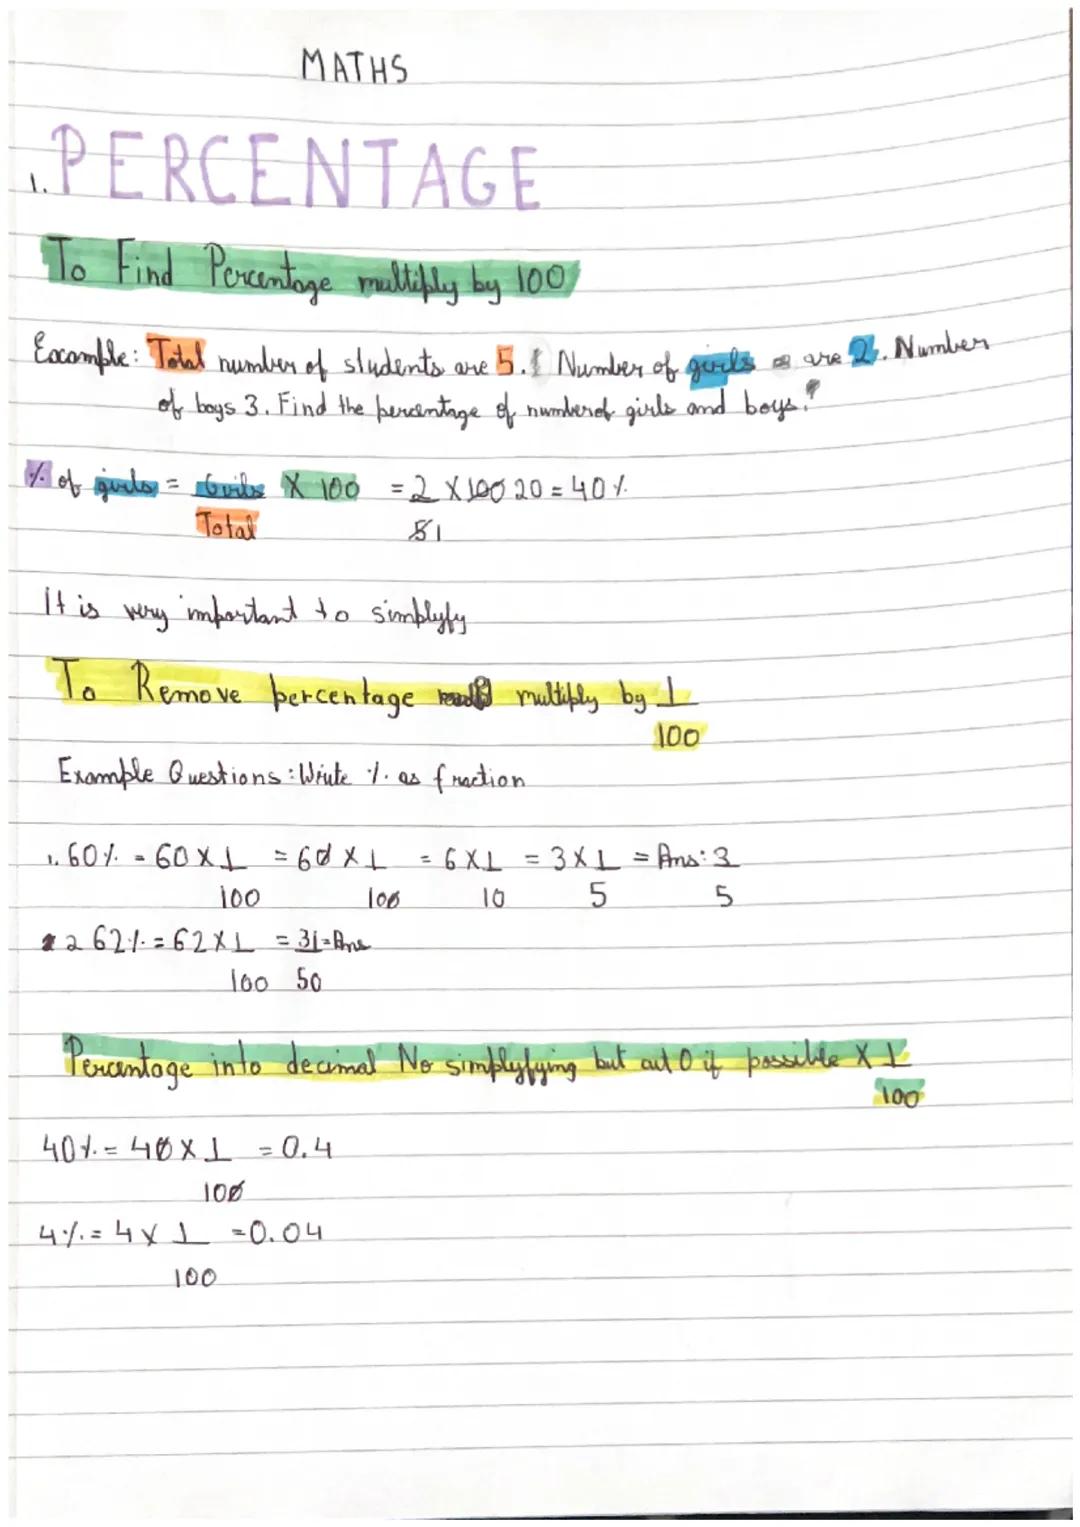 MATHS
1. PERCENTAGE
To Find Percentage multiply by 100
Example: Total number of students are 5. Number of girls are 2. Number
of boys 3. Find the percentage of number of girls and boys?
% of girls = Girls X 100 = 2 X 100 20 = 40 %
Total 5 1
It is very important to simplyfy
To Remove percentage multiply by 1
100
Example Questions: Write % as fraction
1. 60% = 60 X 1 = 60 X 1 = 6 X 1 = 3 X 1 = Ans: 3
100 100 10 5 5
2 62% = 62 X 1 = 31 = Ans
100 50
Percentage into decimal No simplyfying but cut 0 if possible X 1
100
40% = 40 X 1 = 0.4
100
4% = 4 X 1 = 0.04
100